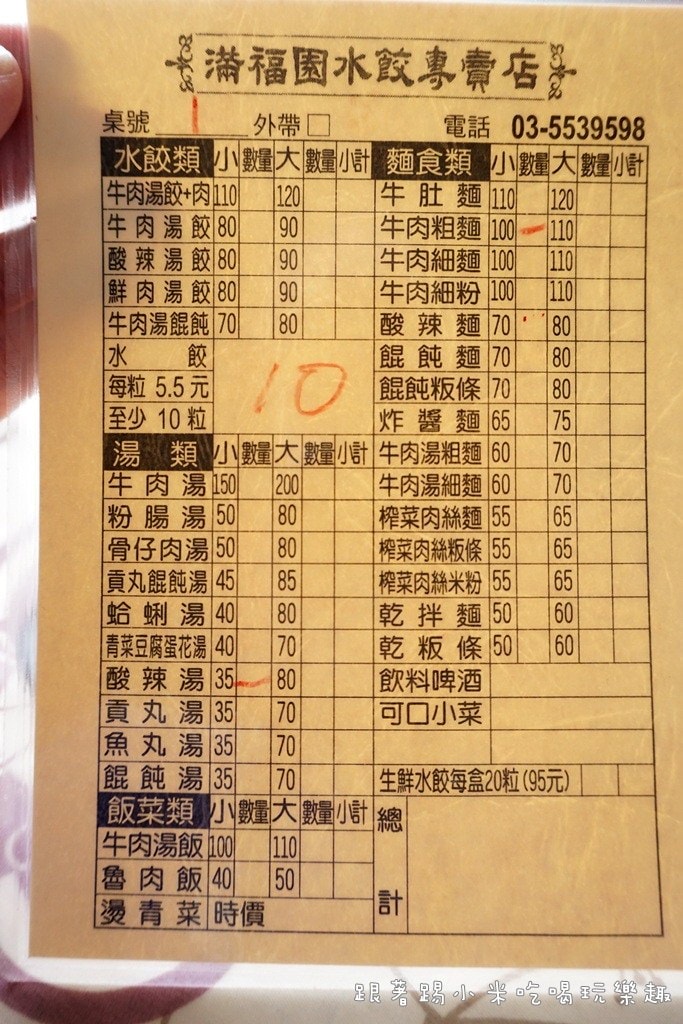 滿福園水餃專賣店
桌號 1 外帶□ 電話 03-5539598
水餃類 小 數量 大 數量 小計
牛肉湯餃+肉 110 120
牛肉湯餃 80 90
酸辣湯餃 80 90
鮮肉湯餃 80 90
牛肉湯餛飩 70 80
水餃
每粒 5.5 元
至少 10 粒
10
湯類 小 數量 大 數量 小計
牛肉湯 150 200
粉腸湯 50 80
骨仔肉湯 50 80
貢丸餛飩湯 45 85
蛤蜊湯 40 80
青菜豆腐蛋花湯 40 70
酸辣湯 35 80
貢丸湯 35 70
魚丸湯 35 70
餛飩湯 35 70
飯菜類 小 數量 大 數量 小計
牛肉湯飯 100 110
魯肉飯 40 50
燙青菜 時價
麵食類 小 數量 大 數量 小計
牛肚麵 110 120
牛肉粗麵 100 110
牛肉細麵 100 110
牛肉細粉 100 110
酸辣麵 70 80
餛飩麵 70 80
餛飩粄條 70 80
炸醬麵 65 75
牛肉湯粗麵 60 70
牛肉湯細麵 60 70
榨菜肉絲麵 55 65
榨菜肉絲粄條 55 65
榨菜肉絲米粉 55 65
乾拌麵 50 60
乾粄條 50 60
飲料啤酒
可口小菜
生鮮水餃每盒20粒(95元)
總計
跟著踢小米吃喝玩樂趣